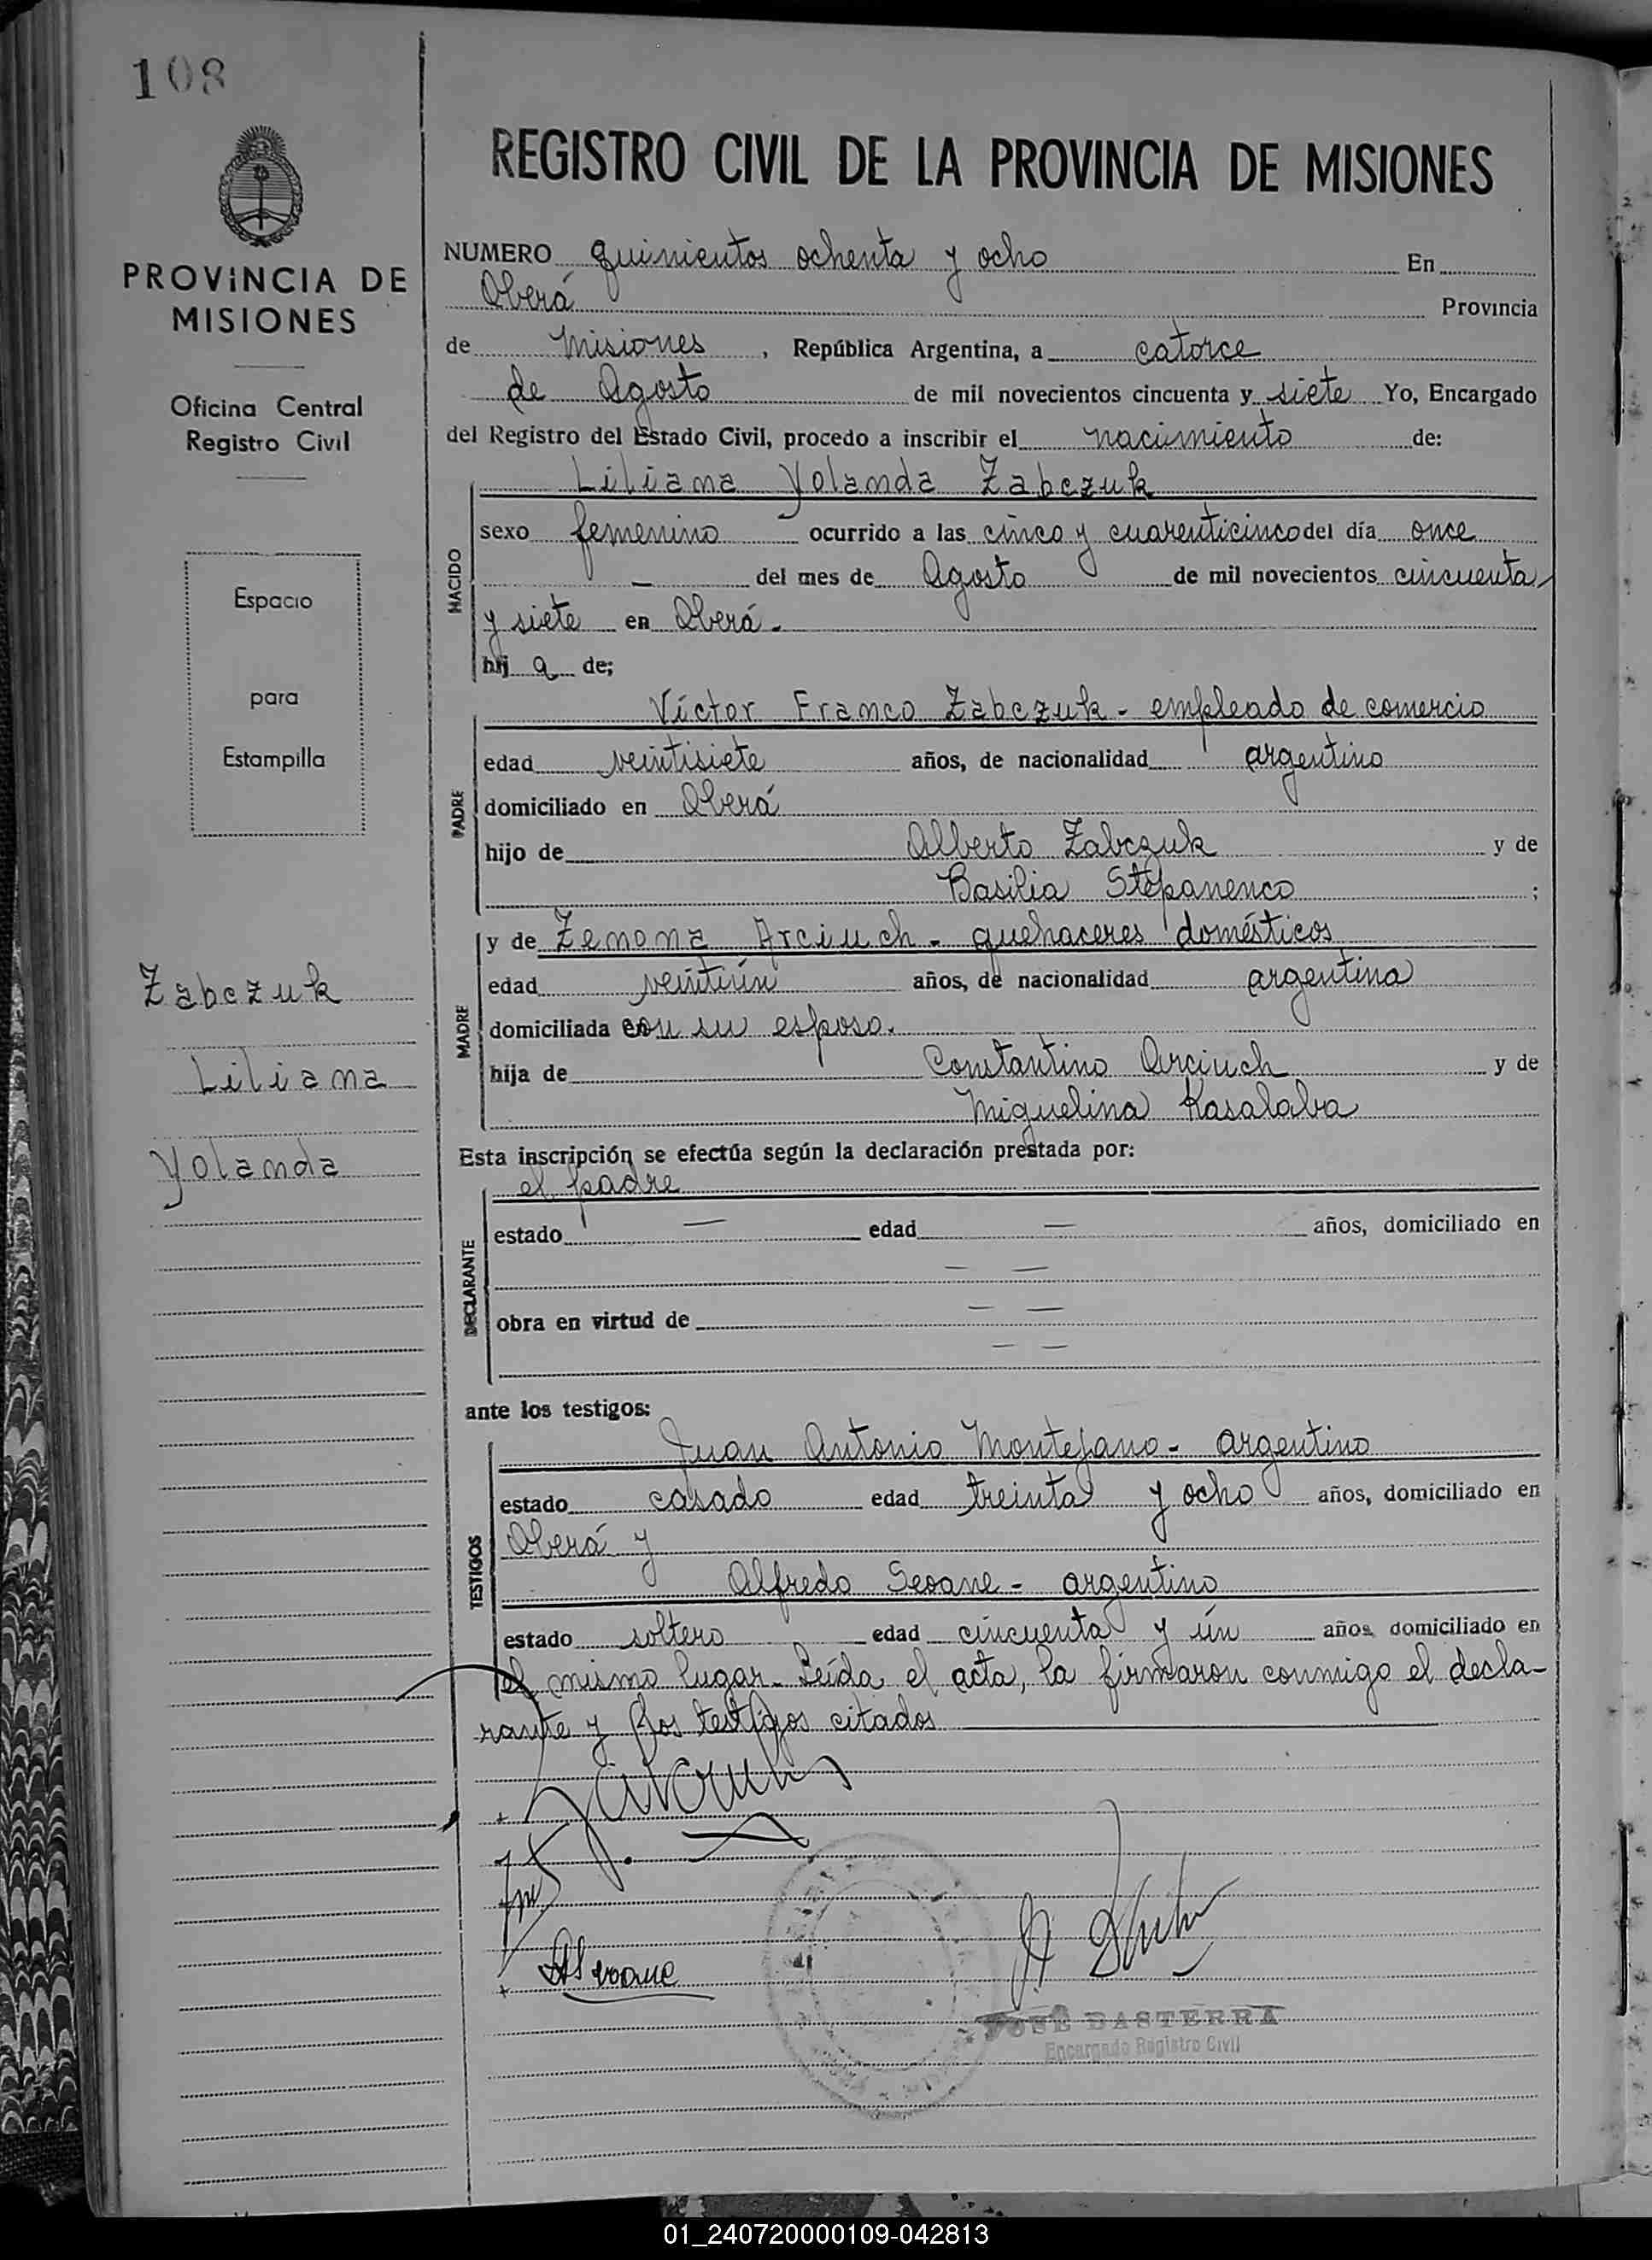 108
PROVINCIA DE
MISIONES
Oficina Central
Registro Civil
Espacio
para
Estampilla
Zabczuk
Liliana
Yolanda
REGISTRO CIVIL DE LA PROVINCIA DE MISIONES
NUMERO quinientos ochenta y ocho En
Oberá Provincia
de Misiones, República Argentina, a catorce
de Agosto de mil novecientos cincuenta y siete Yo, Encargado
del Registro del Estado Civil, procedo a inscribir el nacimiento de:
NACIDO
Liliana Yolanda Zabczuk
sexo femenino ocurrido a las cinco y cuarenticinco del día once
— del mes de Agosto de mil novecientos cincuenta
y siete en Oberá.
hij a de;
PADRE
Víctor Franco Zabczuk - empleado de comercio
edad veintisiete años, de nacionalidad argentino
domiciliado en Oberá
hijo de Alberto Zabczuk y de
Basilia Stepanenco ;
MADRE
y de Zenona Arciuch - quehaceres domésticos
edad veintiún años, de nacionalidad argentina
domiciliada con su esposo.
hija de Constantino Arciuch y de
Miguelina Kasalaba
Esta inscripción se efectúa según la declaración prestada por:
DECLARANTE
el padre
estado — edad — años, domiciliado en
— —
obra en virtud de — —
— —
ante los testigos:
TESTIGOS
Juan Antonio Montejano - argentino
estado casado edad treinta y ocho años, domiciliado en
Oberá y
Alfredo Seoane - argentino
estado soltero edad cincuenta y ún años domiciliado en
el mismo lugar. Leída el acta, la firmaron conmigo el decla-
rante y los testigos citados
ASeoane
JOSÉ BASTERRA
Encargado Registro Civil
01_240720000109-042813